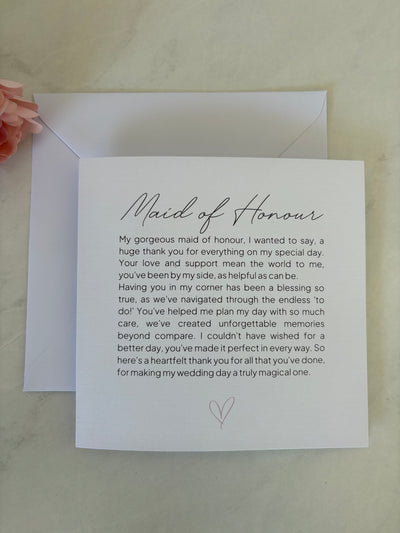 Maid of Honour
My gorgeous maid of honour, I wanted to say, a
huge thank you for everything on my special day.
Your love and support mean the world to me,
you've been by my side, as helpful as can be.
Having you in my corner has been a blessing so
true, as we've navigated through the endless 'to
do!' You've helped me plan my day with so much
care, we've created unforgettable memories
beyond compare. I couldn't have wished for a
better day, you've made it perfect in every way. So
here's a heartfelt thank you for all that you've done,
for making my wedding day a truly magical one.